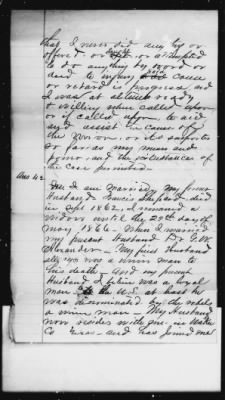 that I never did any by or
offered or or attempted
to do anything by word or
deed to injure said cause
or retard its progress and
I was at all times ready
& willing when called upon
or if called upon to aid
and assist the cause of
the Union or its supporters
so far as my means and
power and the circumstances of
the case permitted
Ans 42
Yes I am married, my first
Husband Francis Shepard died
in Sept 1862, I remained
widow until the 29th day of
May 1866 - When I married
my present Husband Dr G.W.
Alexander - My first Husband
was a union man to
his death, and my present
Husband I believe was a loyal
man to the U.S. at least he
was denominated by the rebels
a union man - My Husband
now resides with me in Walker
Co Texas - and has joined me